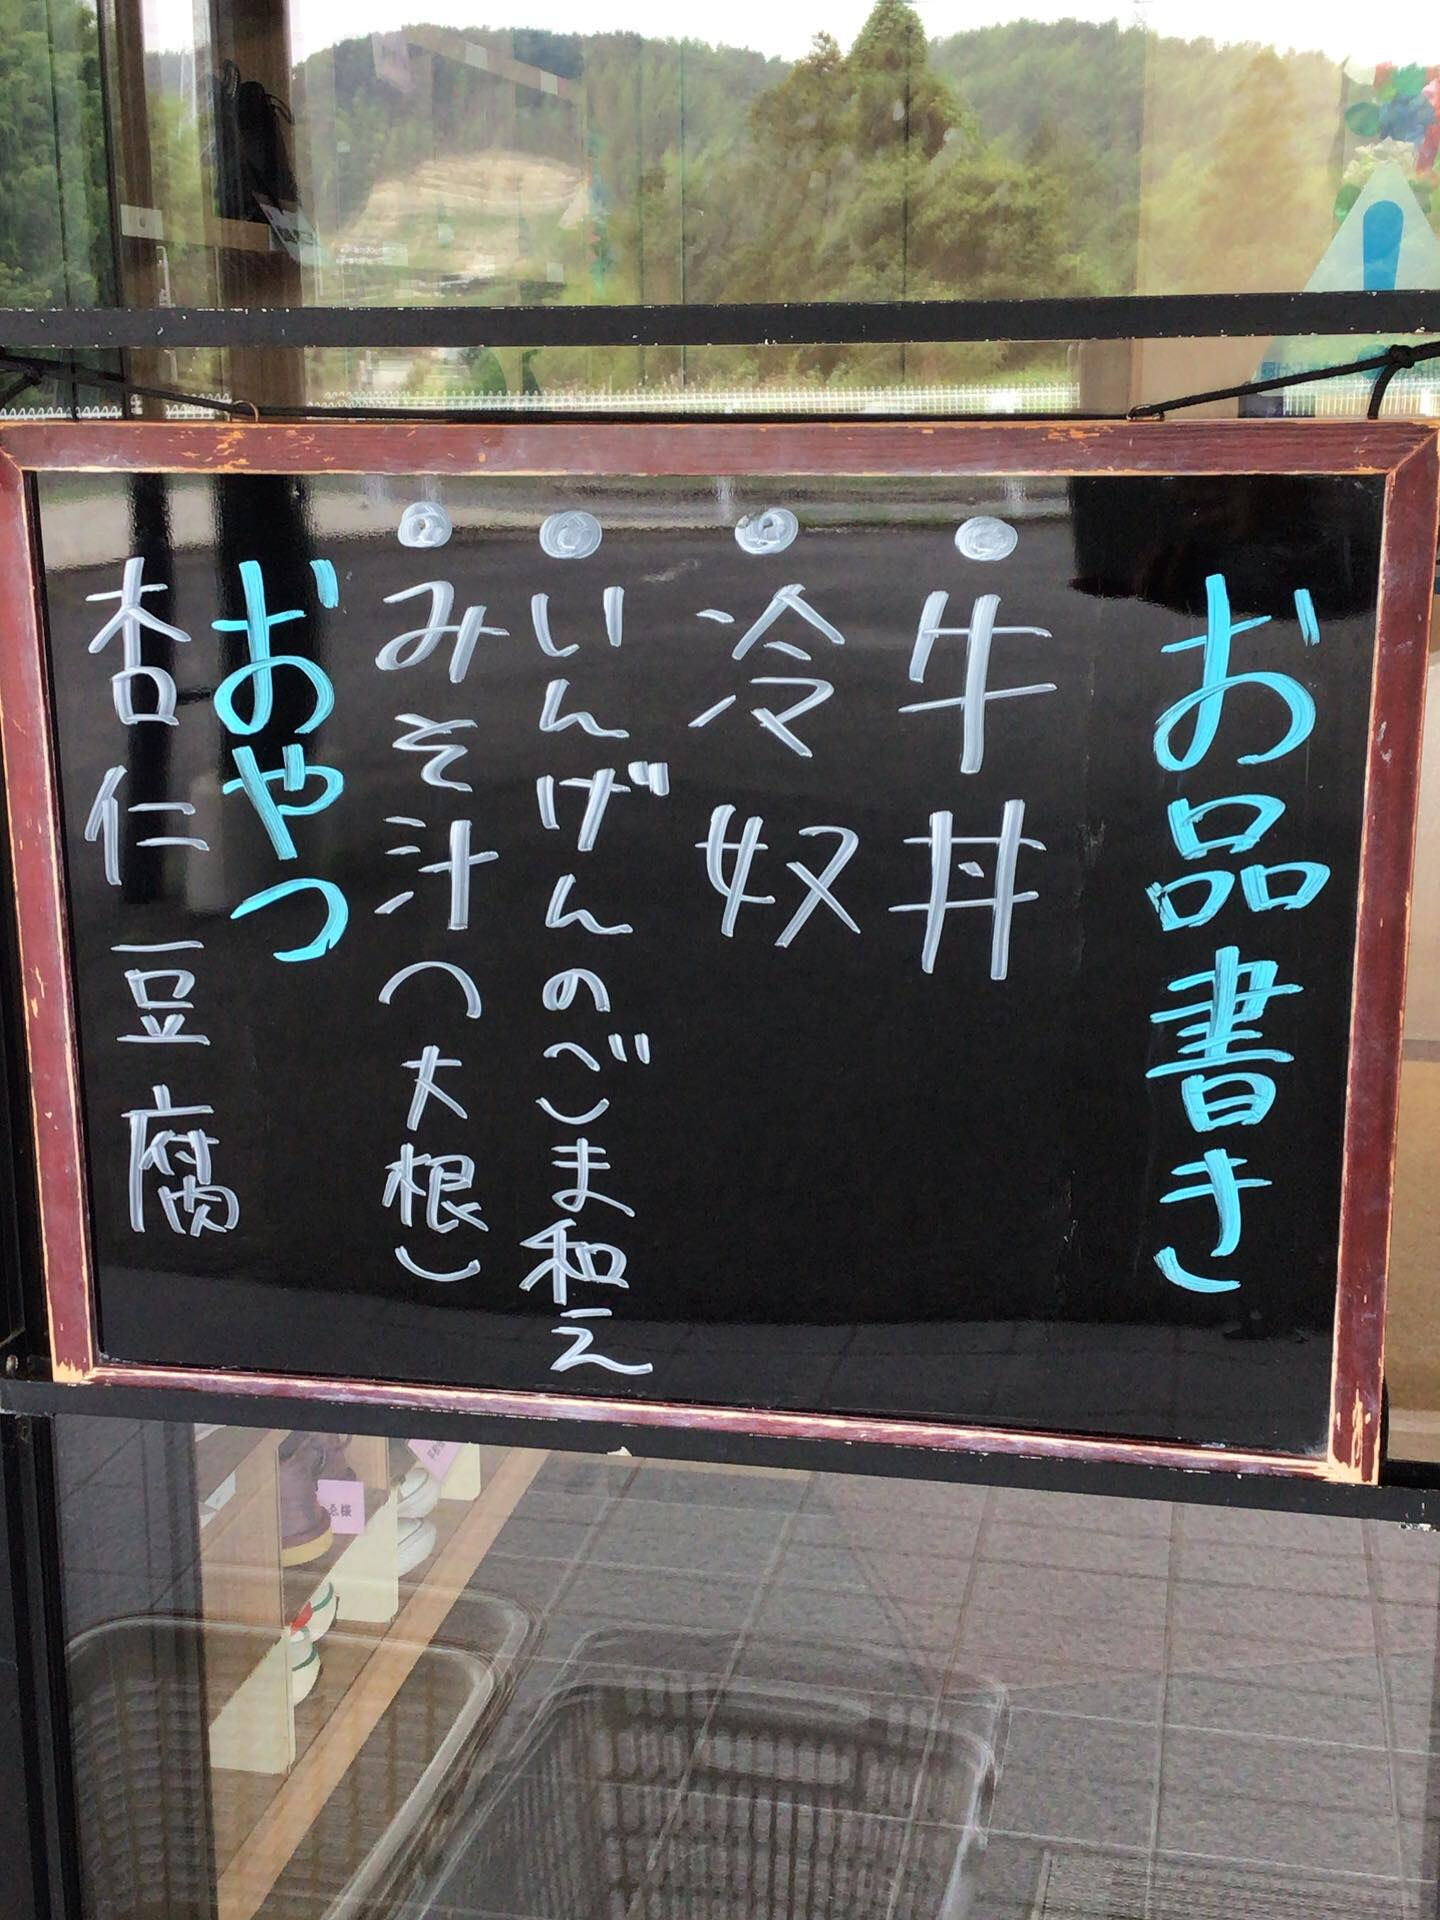 お品書き
牛丼
冷奴
いんげんのごま和え
みそ汁(大根)
おやつ
杏仁豆腐